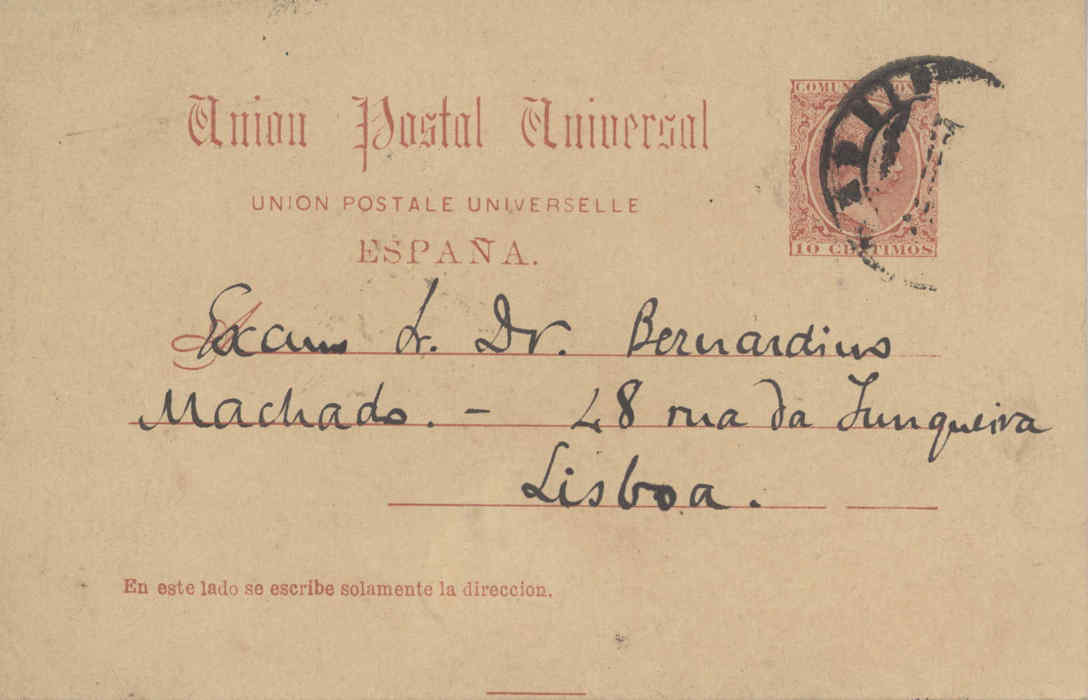 Union Postal Universal
UNION POSTALE UNIVERSELLE
ESPAÑA.
10 CENTIMOS
Excmo Sr. Dr. Bernardino
Machado. - 48 rua da Junqueira
Lisboa.
En este lado se escribe solamente la direccion.